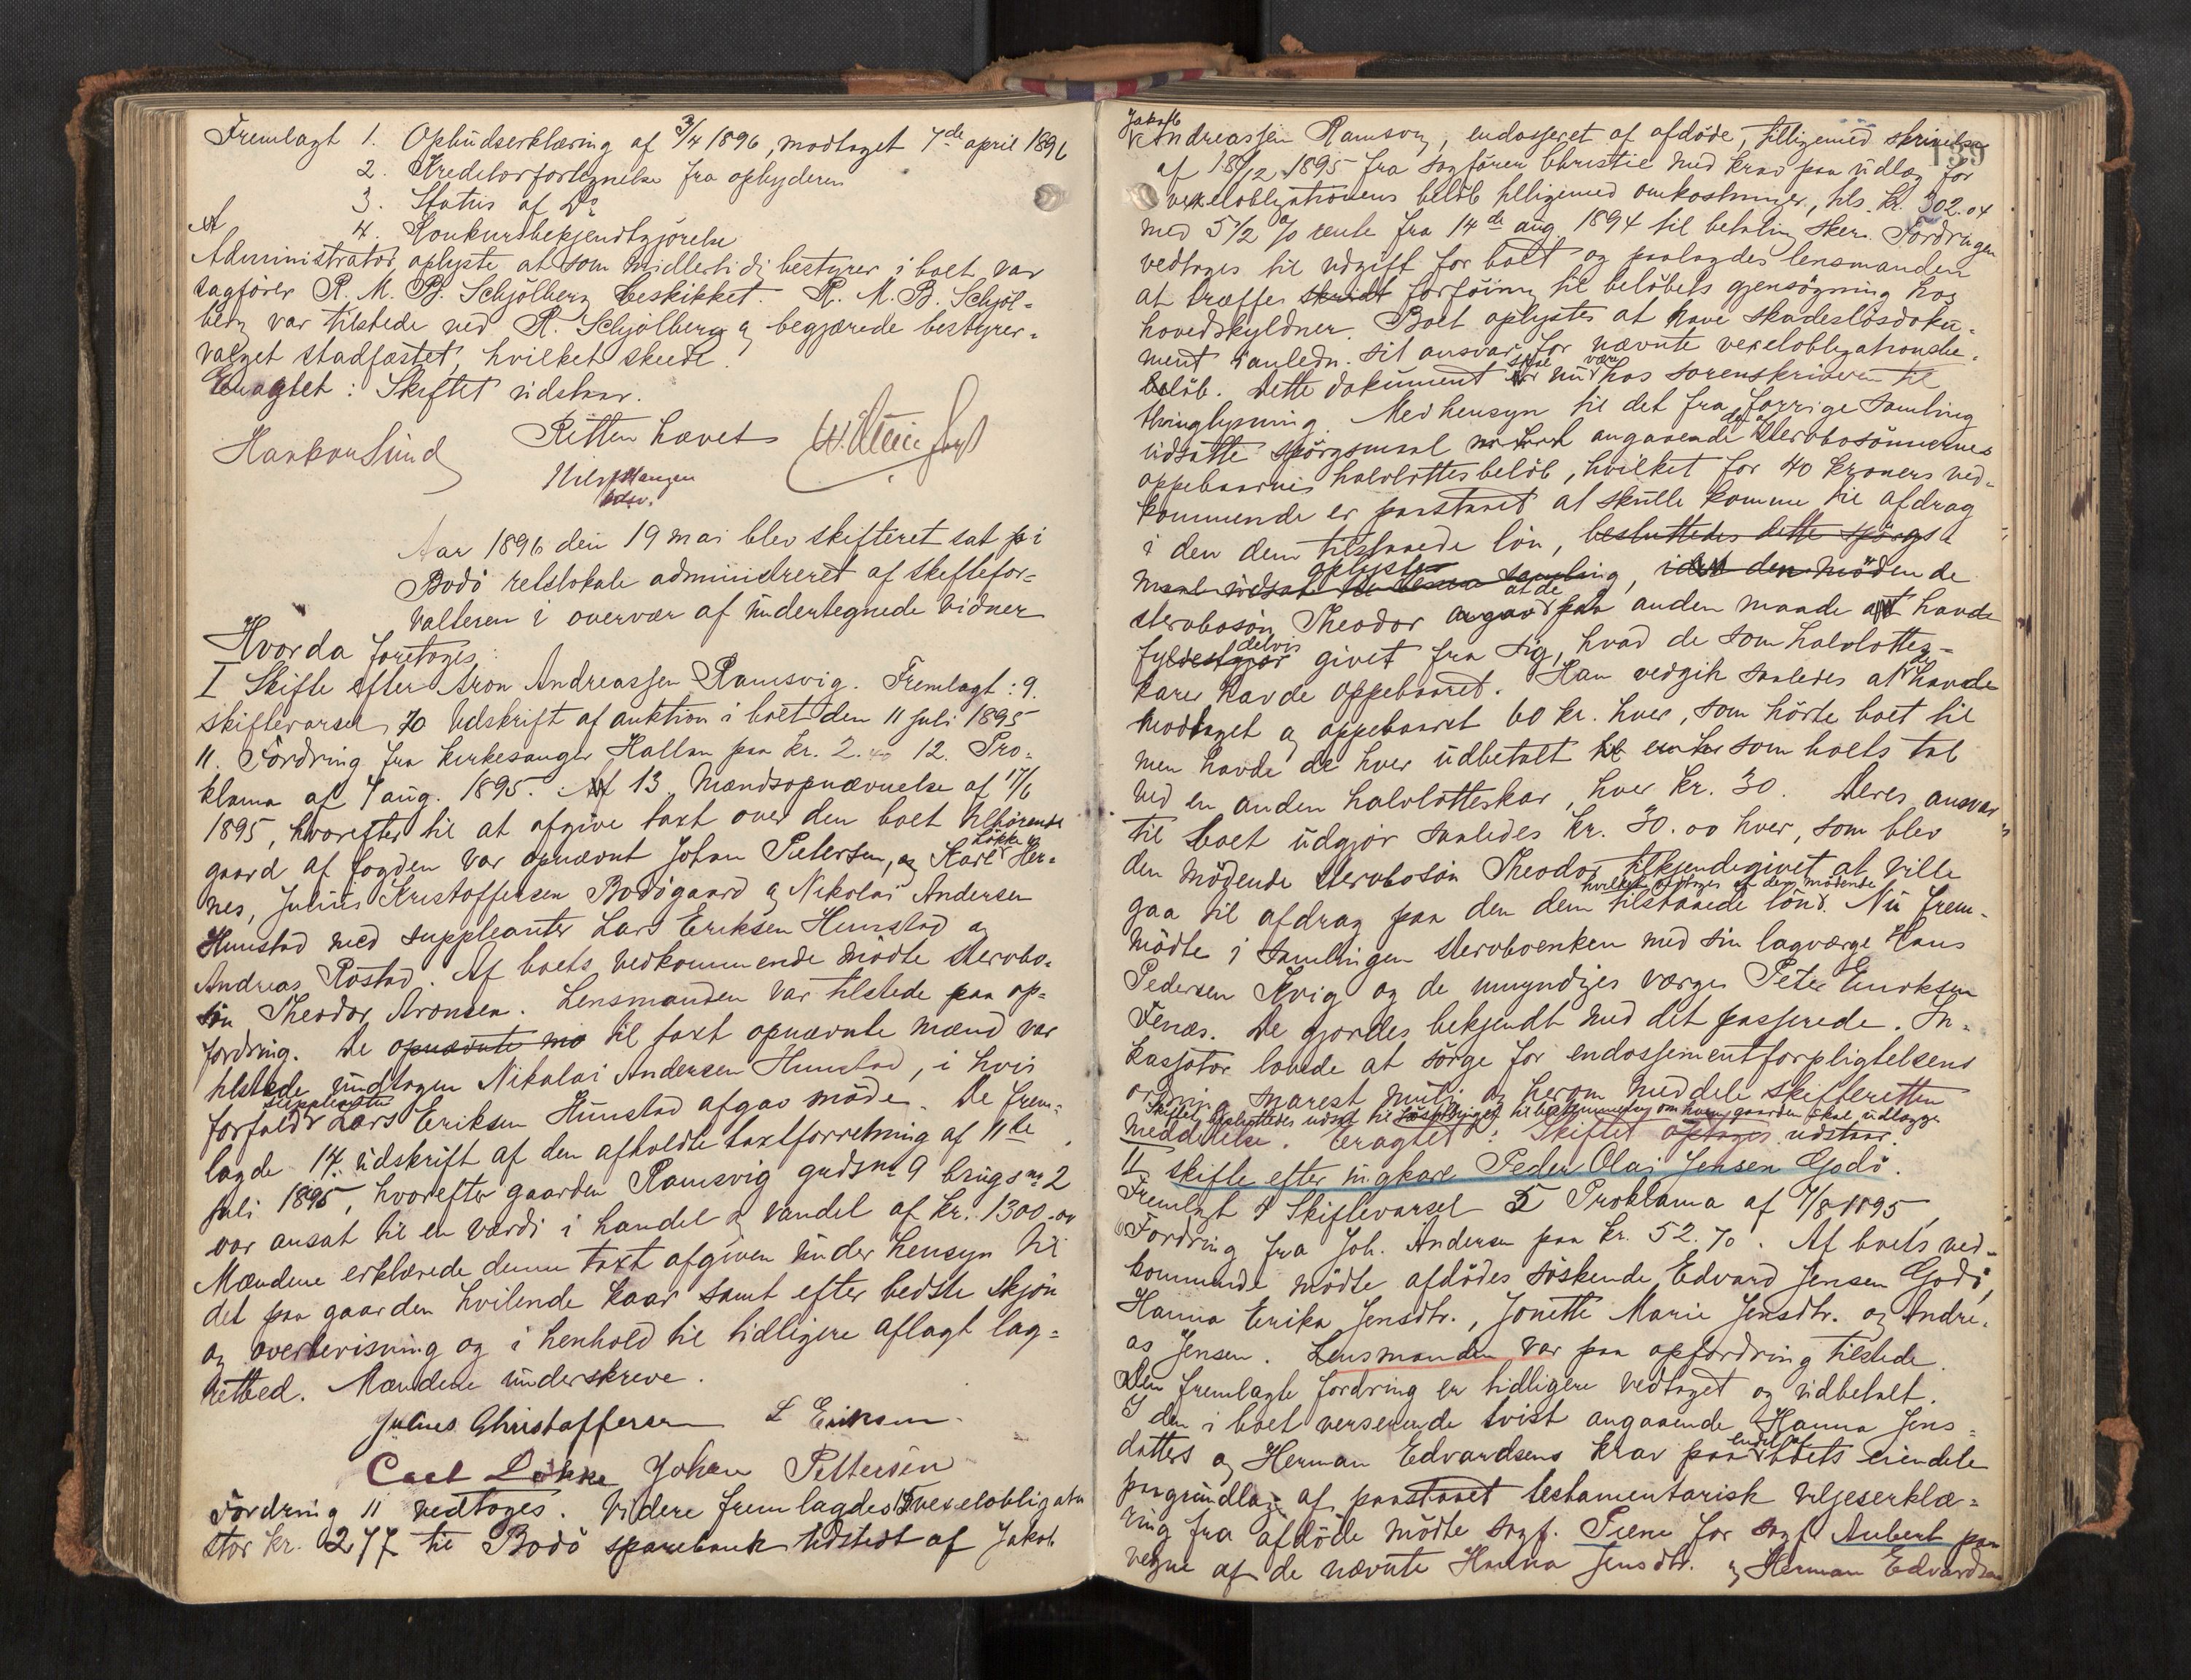 Fremlagt 1. Opbudserklæring af 3/4 1896, modtaget 7de april 1896
2. Kreditorfortegnelse fra opbyderen
3. Status af Do
4. Konkursbekjendtgjørelse
Administrator oplyste at som midlertidi bestyrer i boet var
sagfører R. M. B. Schjölberg beskikket. R. M. B. Schjöl-
berg var tilstede ved R. Schjölberg og begjærede bestyrer-
valget stadfæstet, hvilket skede.
Eragtet: Skiftet udstaar.
Retten hævet
Haakon Sund
Nils Hangen
Aar 1896 den 19 mai blev skifteret sat på
Bodö retslokale administreret af skiftefor-
valteren i overvær af undertegnede vidner
Hvorda foretoges:
I Skifte efter Aron Andreassen Ramsvig. Fremlagt: 9.
skiftevarsel 10 Udskrift af auktion i boet den 11 juli 1895
11. Fordring fra kirkesanger Hallan paa kr. 2.40 12. Pro-
klama af 7 aug. 1895. 13. Mændsopnævnelse af 17/6
1895, hvorefter til at afgive taxt over den boet tilhörende
gaard af fogden var opnævnt Johan Petersen, og Karl Løkke Her-
nes, Julius Kristoffersen Bodøgaard og Nikolai Andersen
Hunstad med suppleanter Lars Eriksen Hunstad og
Andreas Røstad. Af boets vedkommende mödte stervbo-
sön Theodor Aronsen. Lensmanden var tilstede paa op-
fordring. De opnævnte mæ til taxt opnævnte mænd var
tilstede undtagen Nikolai Andersen Hunstad, i hvis
forfald suppleanten Lars Eriksen Hunstad afgav möde. De frem-
lagde 14. udskrift af den afholdte taxtforretning af 11te
juli 1895, hvorefter gaarden Ramsvig grdsno 9 brugsno 2
var ansat til en værdi i handel og vandel af kr. 1300.00
Mændene erklærede denne taxt afgiven under hensyn til
det paa gaarden hvilende kaar samt efter bedste skjön
og overbevisning og i henhold til tidligere aflagt lag-
retted. Mændene underskrev.
Julius Christoffersen L Eriksen
Carl Løkke Johan Pettersen
Fordring 11 vedtoges. Videre fremlagdes 15 vexelobligation
stor kr. 277 til Bodö sparebank udstedt af Jakob
139
Jakob
Andreassen Ramsvig, endosseret af afdöde, tilligemed skrivelse
af 18/12 1895 fra sagförer Christie med krav paa udlæg for
vexelobligationens belöb tilligemed omkostninger, tils. kr. 302.04
med 5 1/2 % rente fra 14de aug. 1894 til betaling sker. Fordringen
vedtoges til udgift for boet og paalagdes lensmanden
at træffe skridt forföining til belöbets gjensögning hos
hovedskyldner. Boet oplystes at have skadeslösdoku-
ment i anledn. sit ansvar for nævnte vexelobligations be-
löb. Dette dokument skal nu være hos sorenskriveren til
thinglysning. Med hensyn til det fra forrige samling
udsatte spörgsmaal angaaende det af stervbosönnernes
oppebaarnes halvlottesbelöb, hvilket for 40 kroners ved-
kommende er paastaaet at skulle komme til afdrag
i den dem tilstaaede lön, besluttedes dette spörgs-
maal udsat til denne samling, oplystes den mödende
stervbosön Theodor at de paa anden maade havde
fyldestgjør delvis givet fra sig, hvad de som halvlottes-
karer havde oppebaaret. Han vedgik saaledes at de havde
modtaget og oppebaaret 60 kr. hver, som hörte boet til
men havde de hver udbetalt som boets tab
ved en anden halvlotteskar, hver kr. 30. Deres ansvar
til boet udgjör saaledes kr. 30.00 hver, som blev
den mödende stervbosön Theodor tilkjendegivet at ville
gaa til afdrag paa den dem tilstaaede lön, hvilket vedtoges af den mödende. Nu frem-
mödte i samlingen stervboenken med sin lagværge Hans
Pedersen Kvig og de umyndiges værge Peter Enoksen
Fenæs. De gjordes bekjendt med det passerede. In-
kassator lovede at sörge for endossementforpligtelsens
ordning snarest mulig og herom meddele skifteretten
Skiftet besluttedes udsat til bestemmelse om hvem gaarden skal udlægges
meddelelse. Eragtet: Skiftet optages udstaar.
II skifte efter ungkarl Peder Olai Jensen Godö.
Fremlagt 4 Skiftevarsel 5 Proklama af 7/8 1895
6 Fordring fra Joh. Andersen paa kr. 52.70. Af boets ved-
kommende mödte afdödes söskende Edvard Jensen Godö,
Hanna Erika Jensdtr., Jonette Marie Jensdtr. og Andre-
as Jensen. Lensmanden var paa opfordring tilstede.
Den fremlagte fordring er tidligere vedtaget og udbetalt.
I den i boet verserende tvist angaaende Hanna Jens-
datters og Herman Edvardsens krav paa endel af boets eiendele
paa grundlag af paastaaet testamentarisk viljeserklæ-
ring fra afdöde mödte sagf. Piene for sagf. Aubert paa
vegne af de nævnte Hanna Jensdtr. og Herman Edvardsen